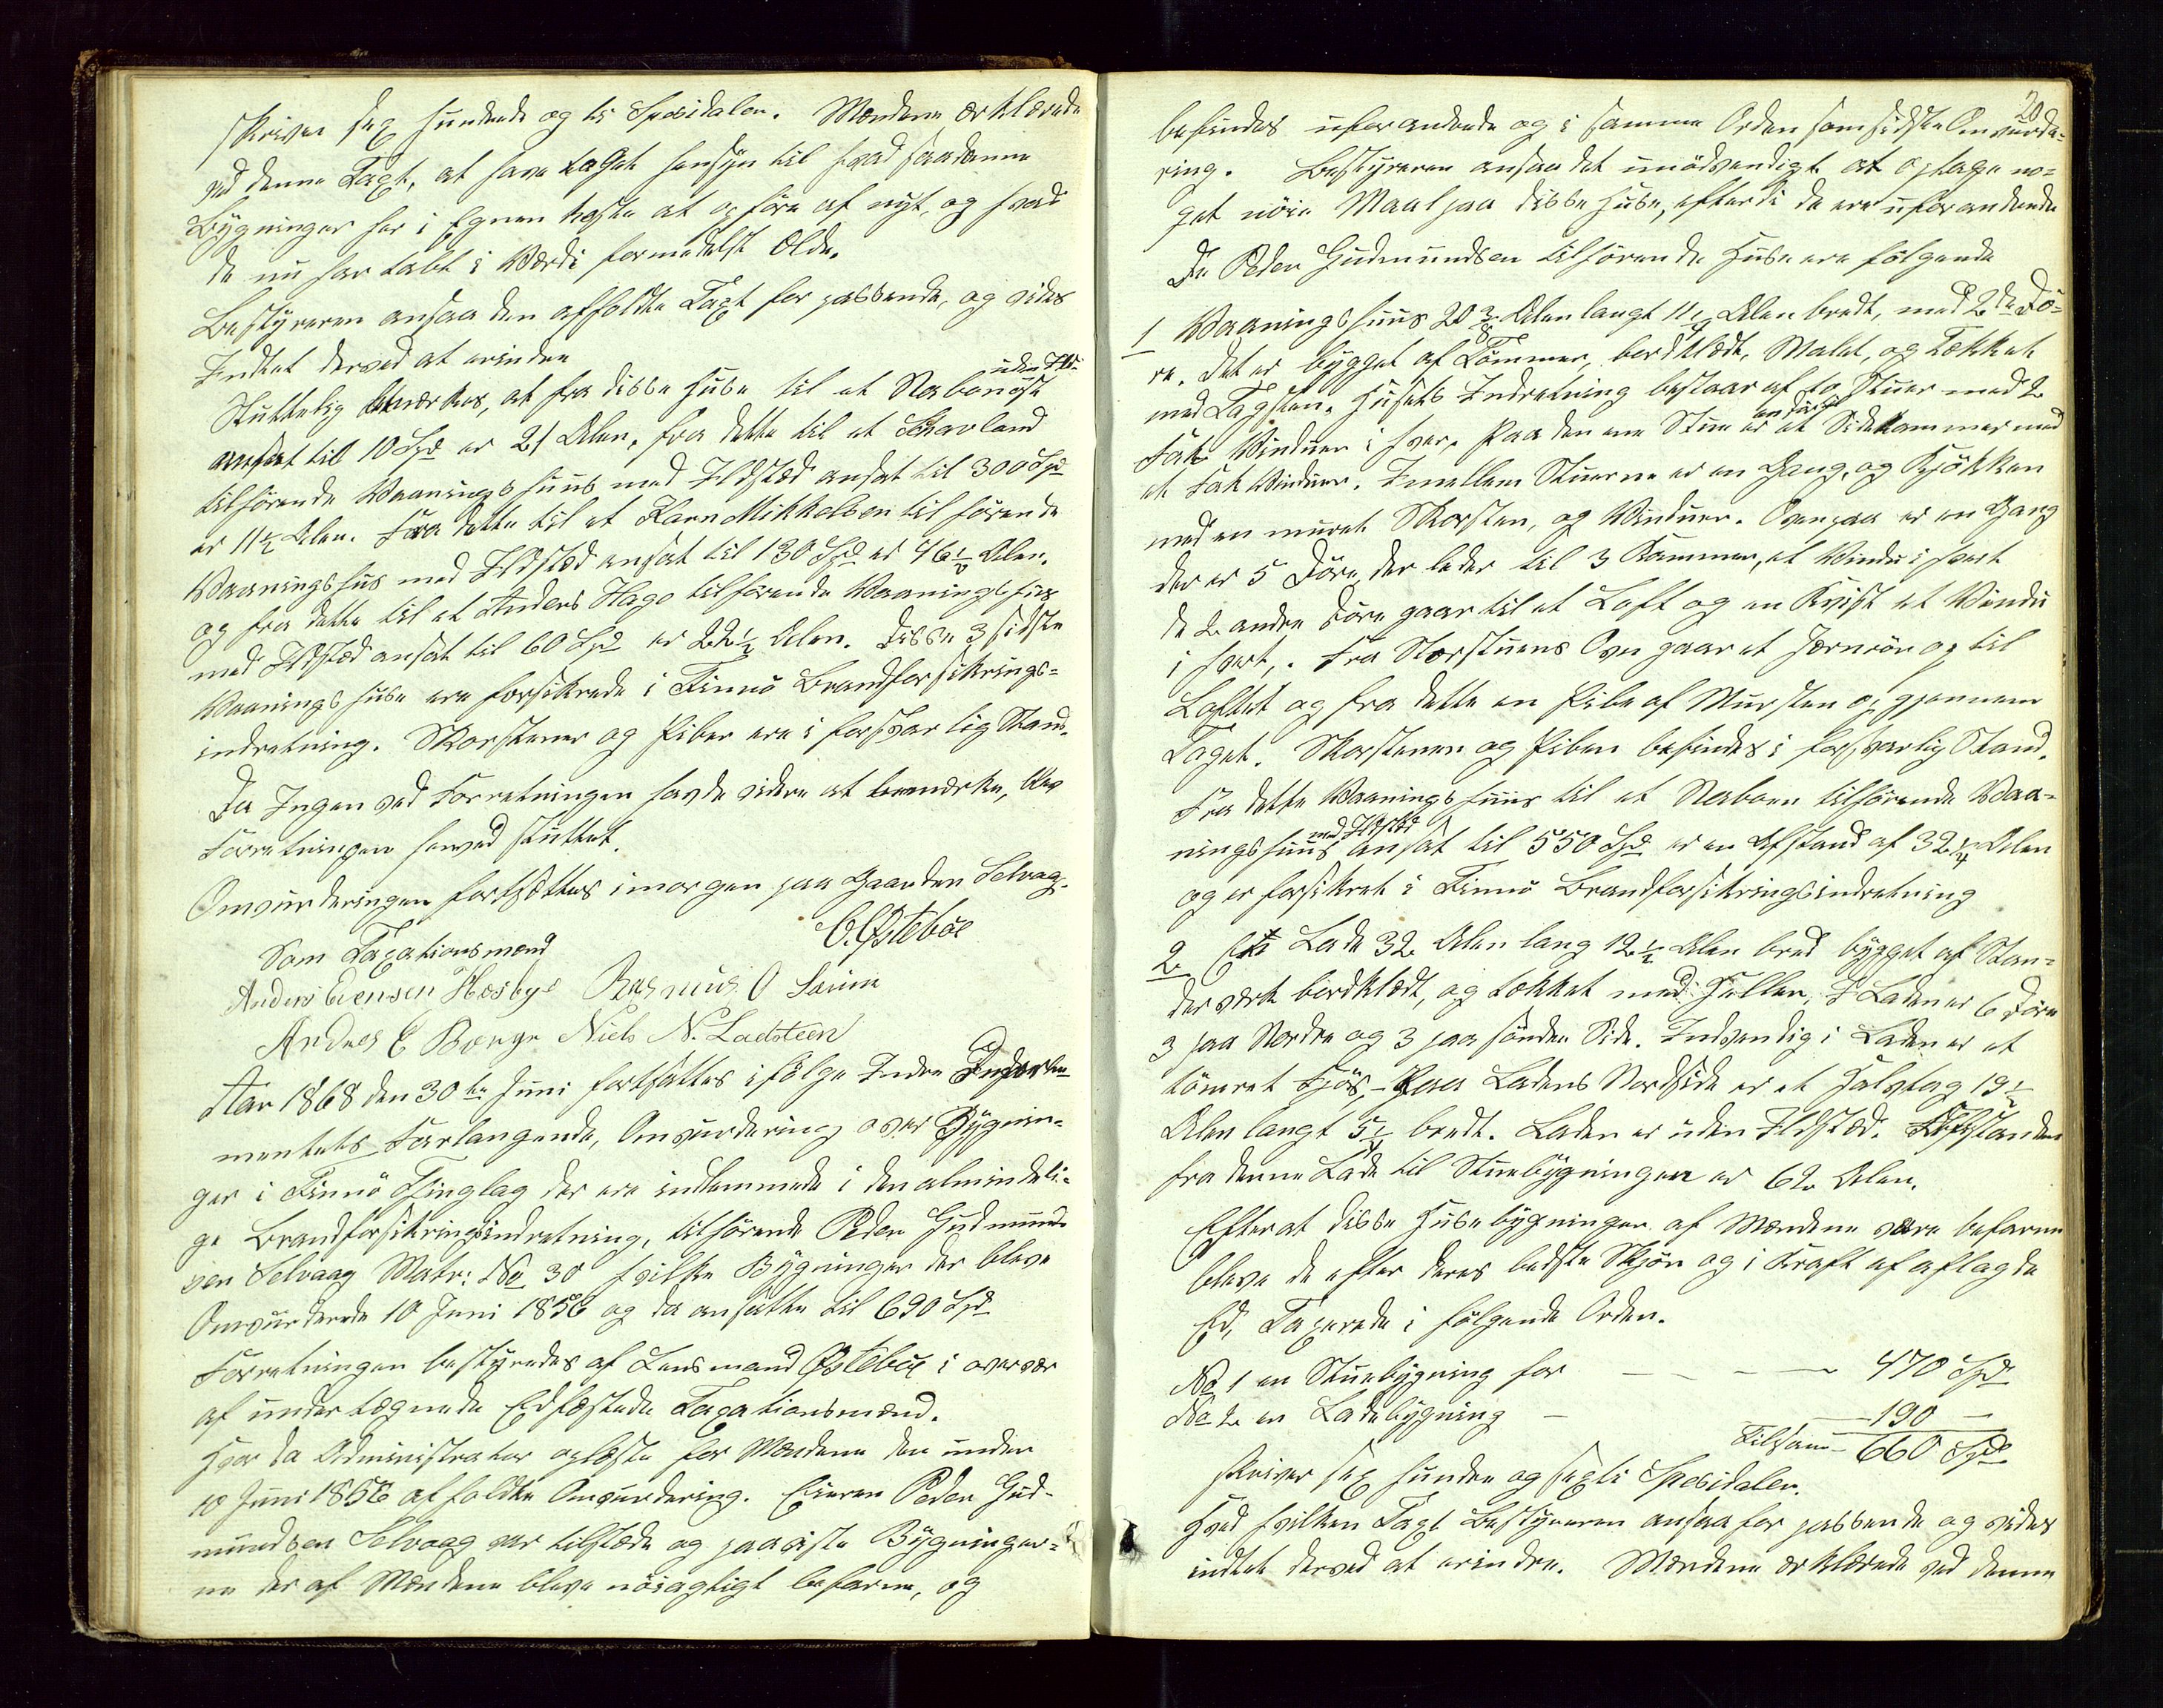 skriver sex hundrede og ti Spesidaler. Mændene erklærede
ved denne Taxt, at have taget hensyn til hvad saadanne
Bygninger her i Egnen koste at opføre af nyt, og hvad
de nu har tabt i Værdi formedelst Ælde.
Bestyreren ansaa den affoldte Taxt for passende, og vides
Indtet derved at erindre
Sluttelig bemærkes, at fra disse Huse til et Nabonøst uden Ild-
ansat til 10 Spd er 21 Alen, fra dette til et
tilhørende Vaaningshuus med Ildsted ansat til 300 Spd
er 11½ Alen. Fra dette til et Karn Mikkelsen tilhørende
Vaaningshus med Ildsted ansat til 130 Spd er 46½ Alen.
og fra dette til et Anders Hage tilhørende Vaaningshus
med Ildsted ansat til 60 Spd er 22½ Alen. Disse 3 sidste
Vaaningshuse ere forsikrede i Finnø Brandforsikrings=
indretning. Skorstener og Piber ere i forsvarlig Stand.
Da Ingen ved Forretningen havde videre at bemærke, blev
Forretningen herved sluttet.
Omvurderingen fortsættes imorgen paa Gaarden Selvaag.
C. Østebøe
Som Taxationsmænd
Anders Evensen Hæsbye Rasmus O Sørum
Andreas E Børge Niels N. Ladsteen
Aar 1868 den 30te Juni fortsattes ifølge Indre Departe-
mentets Forlangende, Omvurdering over Bygnin-
ger i Finnø Thinglag der ere indlemmede i den almindeli-
ge Brandforsikringsindretning, tilhørende Peder Gudmund-
sen Selvaag Matr: No 30 hvilke Bygninger der bleve
Omvurderede 10 Juni 1856 og da ansatte til 690 Spd
Forretningen bestyredes af Lensmand Østebøe i overvær
af undertegnede Edfæstede Taxationsmænd.
Hvor da Administrator oplæste for Mændene den under
10 Juni 1856 affoldte Omvurdering. Eieren Peder Gud-
mundsen Selvaag var tilstede og paaviste Bygninger=
ne der af Mændene bleve nøiagtigt befarne, og
20
befindes uforandrede og i samme Orden som sidste Omvurde-
ring. Bestyreren ansaa det unødvendigt at optage no=
get nøie Maal paa disse Huse, efterdi de ere uforandrede
De Peder Gudmundsen tilhørende Huse ere følgende
1 Vaaningshuus 20¾ Alen langt 11¼ Alen bredt, med 2de Dø-
re. Det er bygget af Tømmer, bordklædt, Malet, og Tækket
med Tagsten. Husets Indretning bestaar af to Stuer med 2
Fak Vinduer i hver. Paa den ene Stue er et Sidekammer med
et Fak Vinduer. Imellem Stuerne er en Gang, og Kjøkken
med en muret Skorsten, og Vinduer. Ovenpaa er en Gang
der er 5 Døre, der leder til 3 Kammer, et Vindu i hvert
de 2 andre Døre gaar til et Loft og en Kvist et Vindu
i hvert,. Fra Storstuens Oven gaar et Jernrør op til
Loftet og fra dette en Pibe af Mursten op gjennem
Taget. Skorstenen og Piben befindes i forsvarlig Stand.
Fra dette Vaaningshuus til et Naboen tilhørende Vaa-
ningshuus med Ildsted ansat til 550 Spd er en Afstand af 32¼ Alen
og er forsikret i Finnø Brandforsikringsindretning
2 En Lade 32 Alen lang 12½ Alen bred bygget af Stan-
derværk bordklædt, og tækket med Heller, I Laden er 6 Døre
3 paa Nordre og 3 paa søndre Side. Indvendig i Laden er et
tømret Fjøs, - Paa Ladens Nordside er et Halvtag 19½
Alen langt 5¼ bredt. Laden er uden Ildsted. Afstanden
fra denne Lade til Stuebygningen er 62 Alen.
Efterat disse Husebygninger af Mændene vare befarne
bleve de efter deres bedste Skjøn og i Kraft af aflagde
Ed, Taxerede i følgende Orden.
No 1 en Stuebygning for — — — — 470 Spd
No 2 en Ladebygning — — 190 —
Tilsam- 660 Spd
skriver sex hundre og sexti Spesidaler.
Hved hvilken Taxt Bestyreren ansaa for passende og vides
indtet derved at erindre. Mændene erklærede ved denne